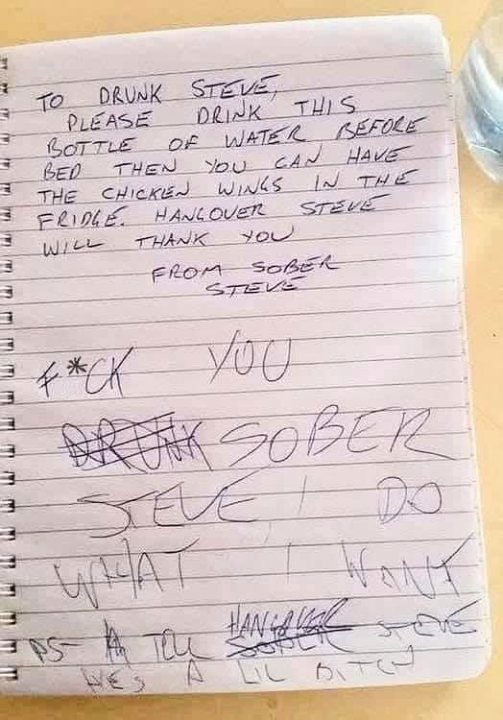 TO DRUNK STEVE,
PLEASE DRINK THIS
BOTTLE OF WATER BEFORE
BED THEN YOU CAN HAVE
THE CHICKEN WINGS IN THE
FRIDGE. HANGOVER STEVE
WILL THANK YOU
FROM SOBER
STEVE
F*CK YOU
DRUNK SOBER
STEVE I DO
WHAT I WANT
PS- TELL HANGOVER SOBER STEVE
HE'S A LIL BITCH